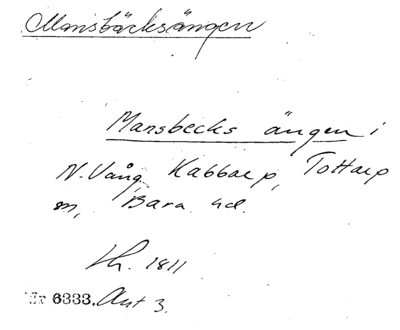 Mansbäcksängen
Mansbecks ängen i
N. Vång, Kabbarp, Tottarp
sn, Bara hd.
Lh. 1811
Nr 6333. Akt 3.